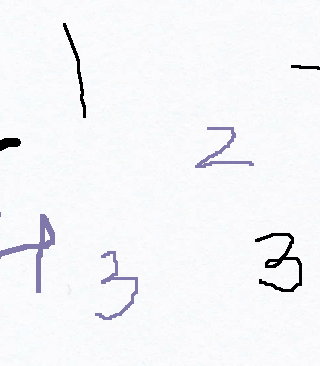 1
2
4 3 3